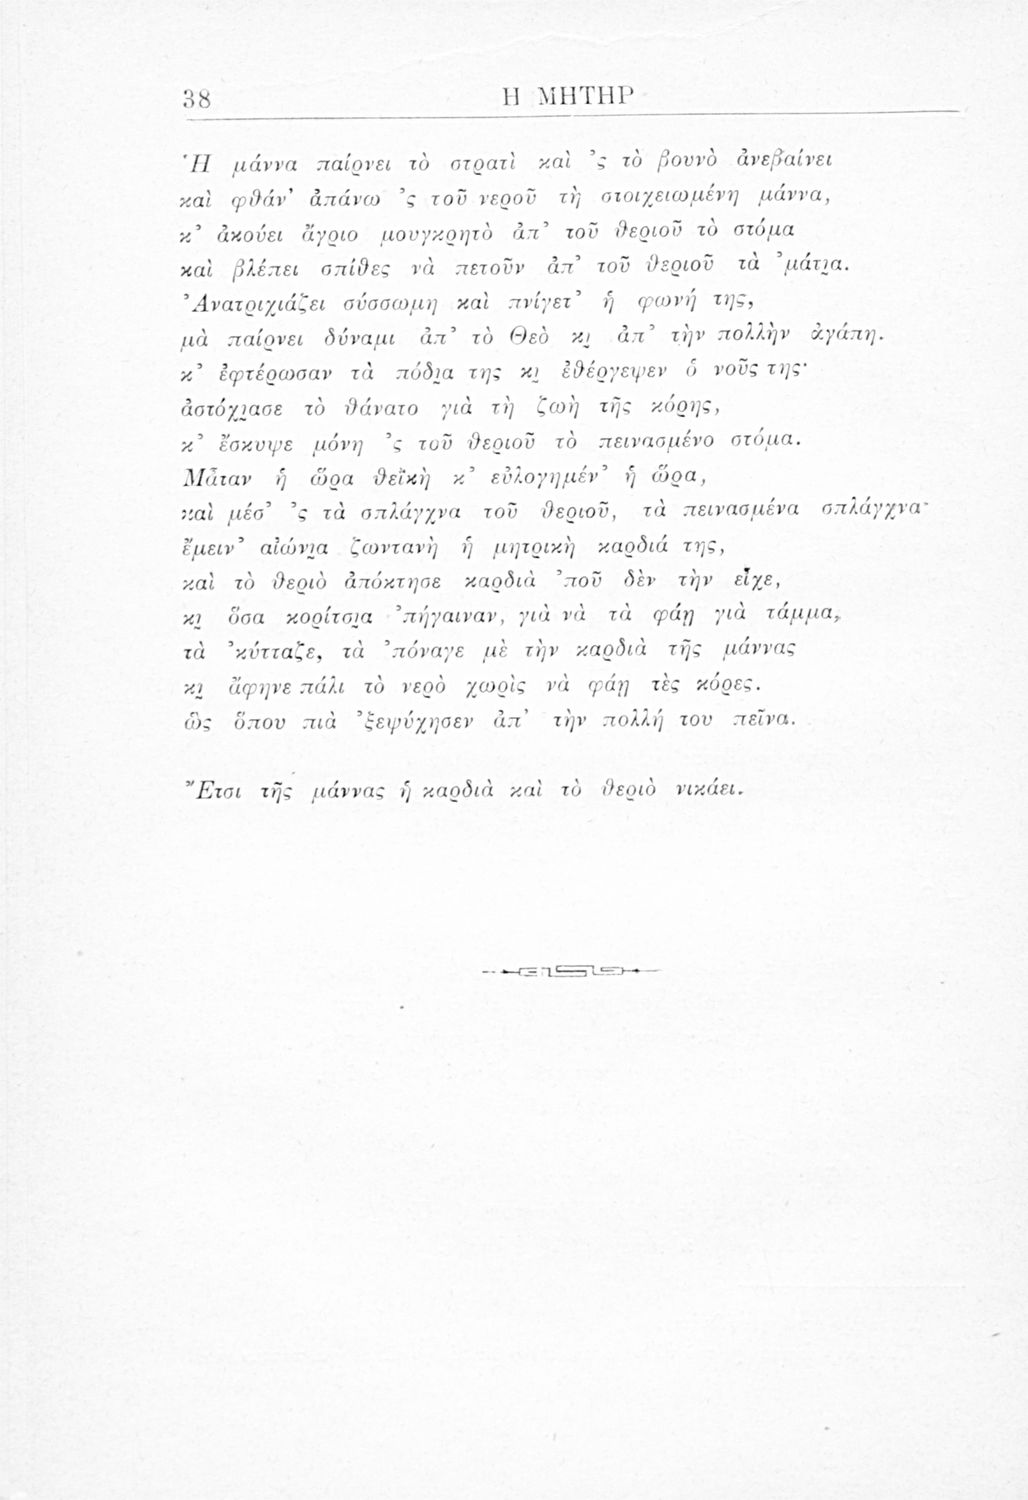 38
Η ΜΗΤΗΡ
Ἡ μάννα παίρνει τὸ στρατὶ καὶ ’ς τὸ βουνὸ ἀνεβαίνει
καὶ φθάν’ ἀπάνω ’ς τοῦ νεροῦ τὴ στοιχειωμένη μάννα,
κ’ ἀκούει ἄγριο μουγκρητὸ ἀπ’ τοῦ θεριοῦ τὸ στόμα
καὶ βλέπει σπίθες νὰ πετοῦν ἀπ’ τοῦ θεριοῦ τὰ ’μάτι̯α.
Ἀνατριχιάζει σύσσωμη καὶ πνίγετ’ ἡ φωνή της,
μὰ παίρνει δύναμι ἀπ’ τὸ Θεὸ κι̯ ἀπ’ τὴν πολλὴν ἀγάπη.
κ’ ἐφτέρωσαν τὰ πόδι̯α της κι̯ ἐθέργεψεν ὁ νοῦς της·
ἀστόχι̯ασε τὸ θάνατο γιὰ τὴ ζωὴ τῆς κόρης,
κ’ ἔσκυψε μόνη ’ς τοῦ θεριοῦ τὸ πεινασμένο στόμα.
Μἆταν ἡ ὥρα θεϊκὴ κ’ εὐλογημέν’ ἡ ὥρα,
καὶ μέσ’ ’ς τὰ σπλάγχνα τοῦ θεριοῦ, τὰ πεινασμένα σπλάγχνα·
ἔμειν’ αἰώνι̯α ζωντανὴ ἡ μητρικὴ καρδιά της,
καὶ τὸ θεριὸ ἀπόκτησε καρδιὰ ’ποῦ δὲν τὴν εἶχε,
κι̯ ὅσα κορίτσι̯α ’πήγαιναν, γιὰ νὰ τὰ φάῃ γιὰ τάμμα,
τὰ ’κύτταζε, τὰ ’πόναγε μὲ τὴν καρδιὰ τῆς μάννας
κι̯ ἄφηνε πάλι τὸ νερὸ χωρὶς νὰ φάῃ τὲς κόρες.
ὣς ὅπου πιὰ ’ξεψύχησεν ἀπ’ τὴν πολλή του πεῖνα.
Ἔτσι τῆς μάννας ἡ καρδιὰ καὶ τὸ θεριὸ νικάει.